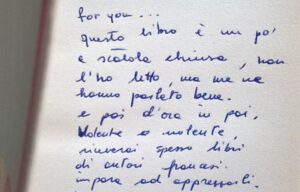 for you...
questo libro è un po'
a scatola chiusa, non
l'ho letto, ma me ne
hanno parlato bene.
e poi d'ora in poi,
volente o nolente,
riceverai spesso libri
di autori francesi.
impara ad apprezzarli.